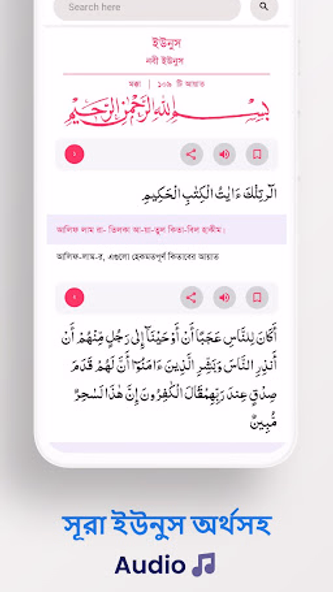 Search here
ইউনুস
নবী ইউনুস
মক্কা | ১০৯ টি আয়াত
بِسْمِ اللهِ الرَّحْمٰنِ الرَّحِيْمِ
১
الٓرۚ تِلْكَ ءَايٰتُ الْكِتٰبِ الْحَكِيْمِ
আলিফ লাম রা- তিলকা আ-য়া-তুল কিতা-বিল হাকীম।
আলিফ-লাম-র, এগুলো হেকমতপূর্ণ কিতাবের আয়াত
أَكَانَ لِلنَّاسِ عَجَبًا أَنْ أَوْحَيْنَآ إِلٰى رَجُلٍ مِّنْهُمْ أَنْ
أَنذِرِ النَّاسَ وَبَشِّرِ الَّذِينَ ءَامَنُوٓا أَنَّ لَهُمْ قَدَمَ
صِدْقٍ عِندَ رَبِّهِمْ قَالَ الْكٰفِرُونَ إِنَّ هٰذَا لَسٰحِرٌ
مُّبِينٌ
সূরা ইউনুস অর্থসহ
Audio